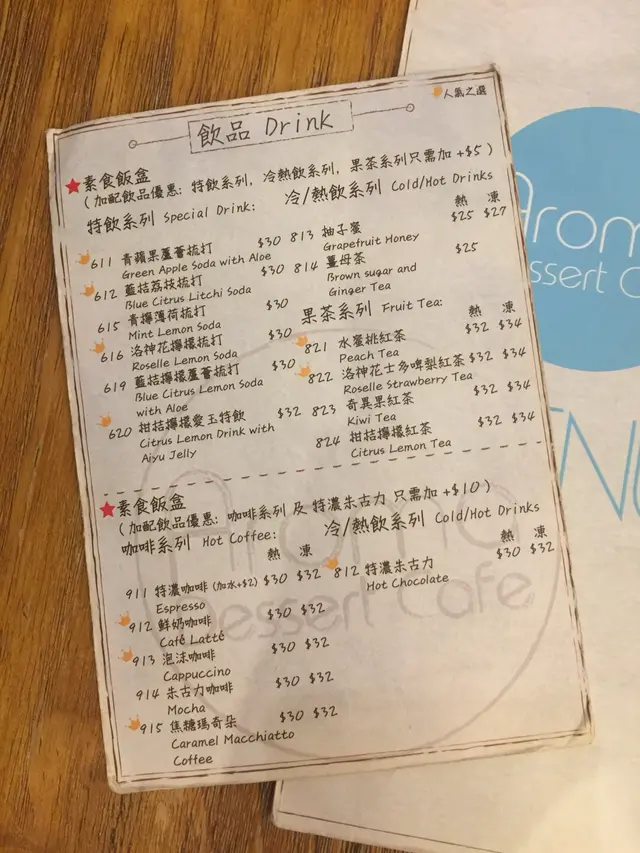 人氣之選
飲品 Drink
素食飯盒
(加配飲品優惠: 特飲系列, 冷熱飲系列, 果茶系列只需加 +$5)
特飲系列 Special Drink:
611 青蘋果蘆薈梳打 $30
Green Apple Soda with Aloe
612 藍桔荔枝梳打 $30
Blue Citrus Litchi Soda
615 青檸薄荷梳打 $30
Mint Lemon Soda
616 洛神花檸檬梳打 $30
Roselle Lemon Soda
619 藍桔檸檬蘆薈梳打 $30
Blue Citrus Lemon Soda
with Aloe
620 柑桔檸檬愛玉特飲 $32
Citrus Lemon Drink with
Aiyu Jelly
冷/熱飲系列 Cold/Hot Drinks
熱 凍
813 柚子蜜 $25 $27
Grapefruit Honey
814 薑母茶 $25
Brown sugar and
Ginger Tea
果茶系列 Fruit Tea:
熱 凍
821 水蜜桃紅茶 $32 $34
Peach Tea
822 洛神花士多啤梨紅茶 $32 $34
Roselle Strawberry Tea
823 奇異果紅茶 $32 $34
Kiwi Tea
824 柑桔檸檬紅茶 $32 $34
Citrus Lemon Tea
素食飯盒
(加配飲品優惠: 咖啡系列 及 特濃朱古力 只需加 +$10)
咖啡系列 Hot Coffee:
熱 凍
911 特濃咖啡 (加水+$2) $30 $32
Espresso
912 鮮奶咖啡 $30 $32
Café Latté
913 泡沫咖啡 $30 $32
Cappuccino
914 朱古力咖啡 $30 $32
Mocha
915 焦糖瑪奇朵 $30 $32
Caramel Macchiatto
Coffee
冷/熱飲系列 Cold/Hot Drinks
熱 凍
812 特濃朱古力 $30 $32
Hot Chocolate
Aroma
Dessert Cafe
Arom
ssert C
NU